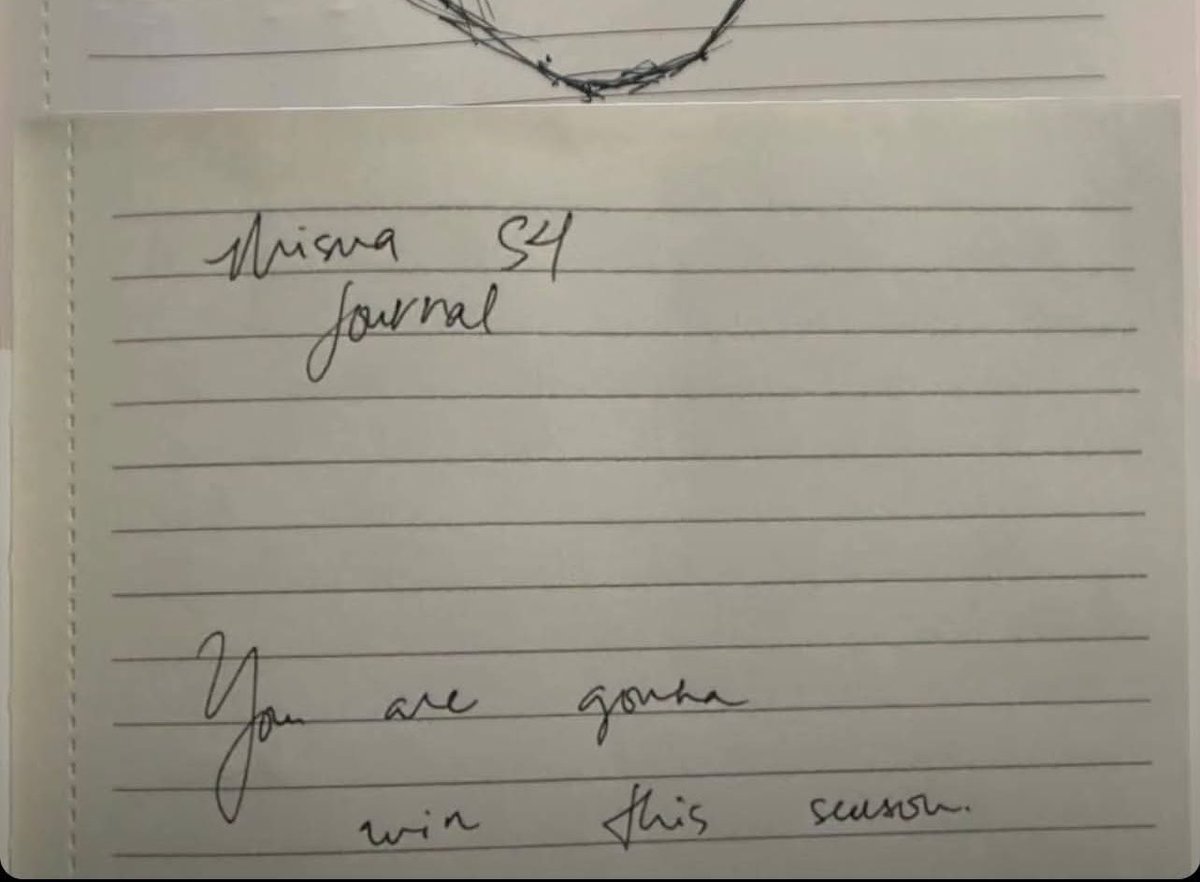 Misua S4
Journal
You are gonna
win this season.